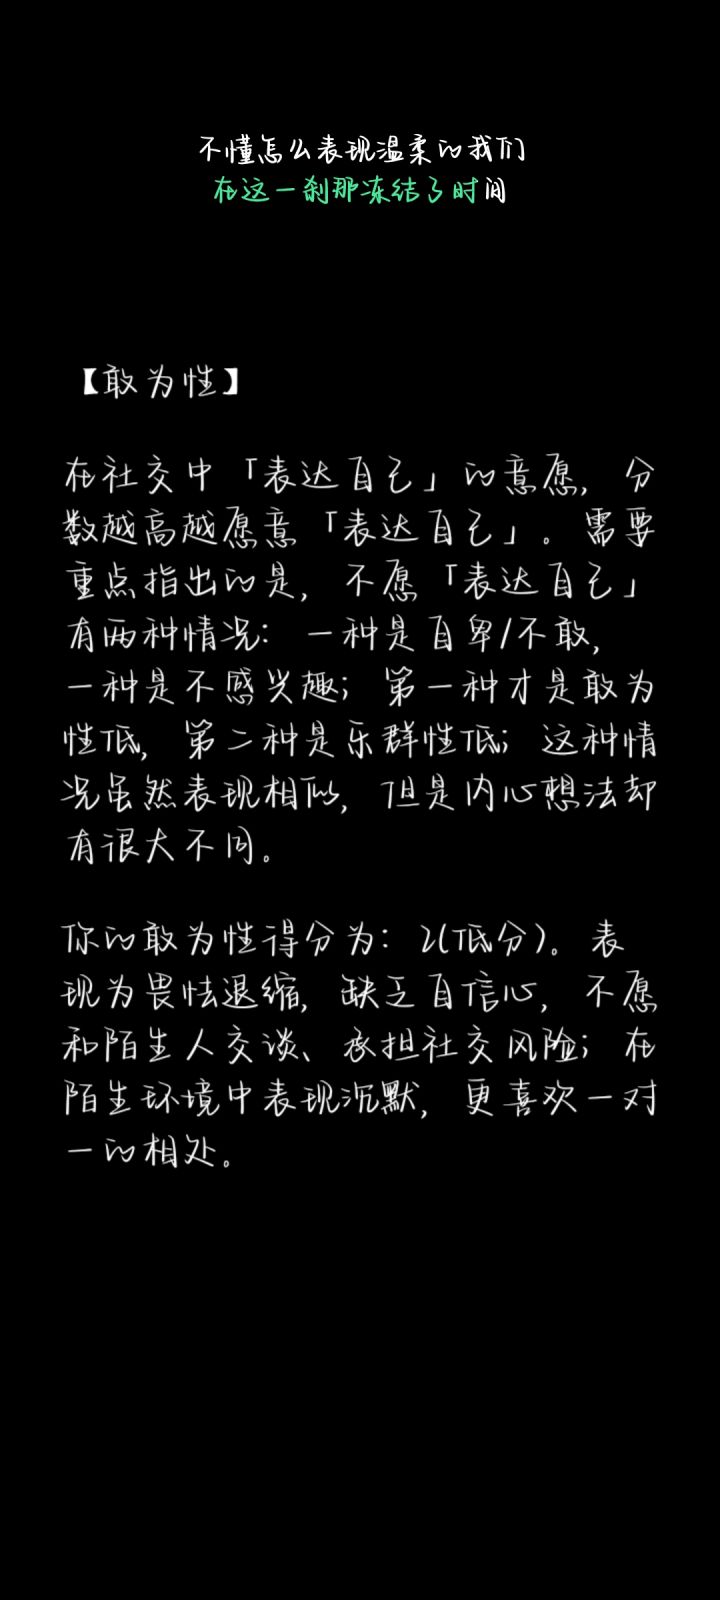 不懂怎么表现温柔的我们
在这一刹那冻结了时间
【敢为性】
在社交中「表达自己」的意愿，分
数越高越愿意「表达自己」。需要
重点指出的是，不愿「表达自己」
有两种情况：一种是自卑/不敢，
一种是不感兴趣；第一种才是敢为
性低，第二种是乐群性低；这种情
况虽然表现相似，但是内心想法却
有很大不同。
你的敢为性得分为：2(低分)。表
现为畏怯退缩，缺乏自信心，不愿
和陌生人交谈、承担社交风险；在
陌生环境中表现沉默，更喜欢一对
一的相处。